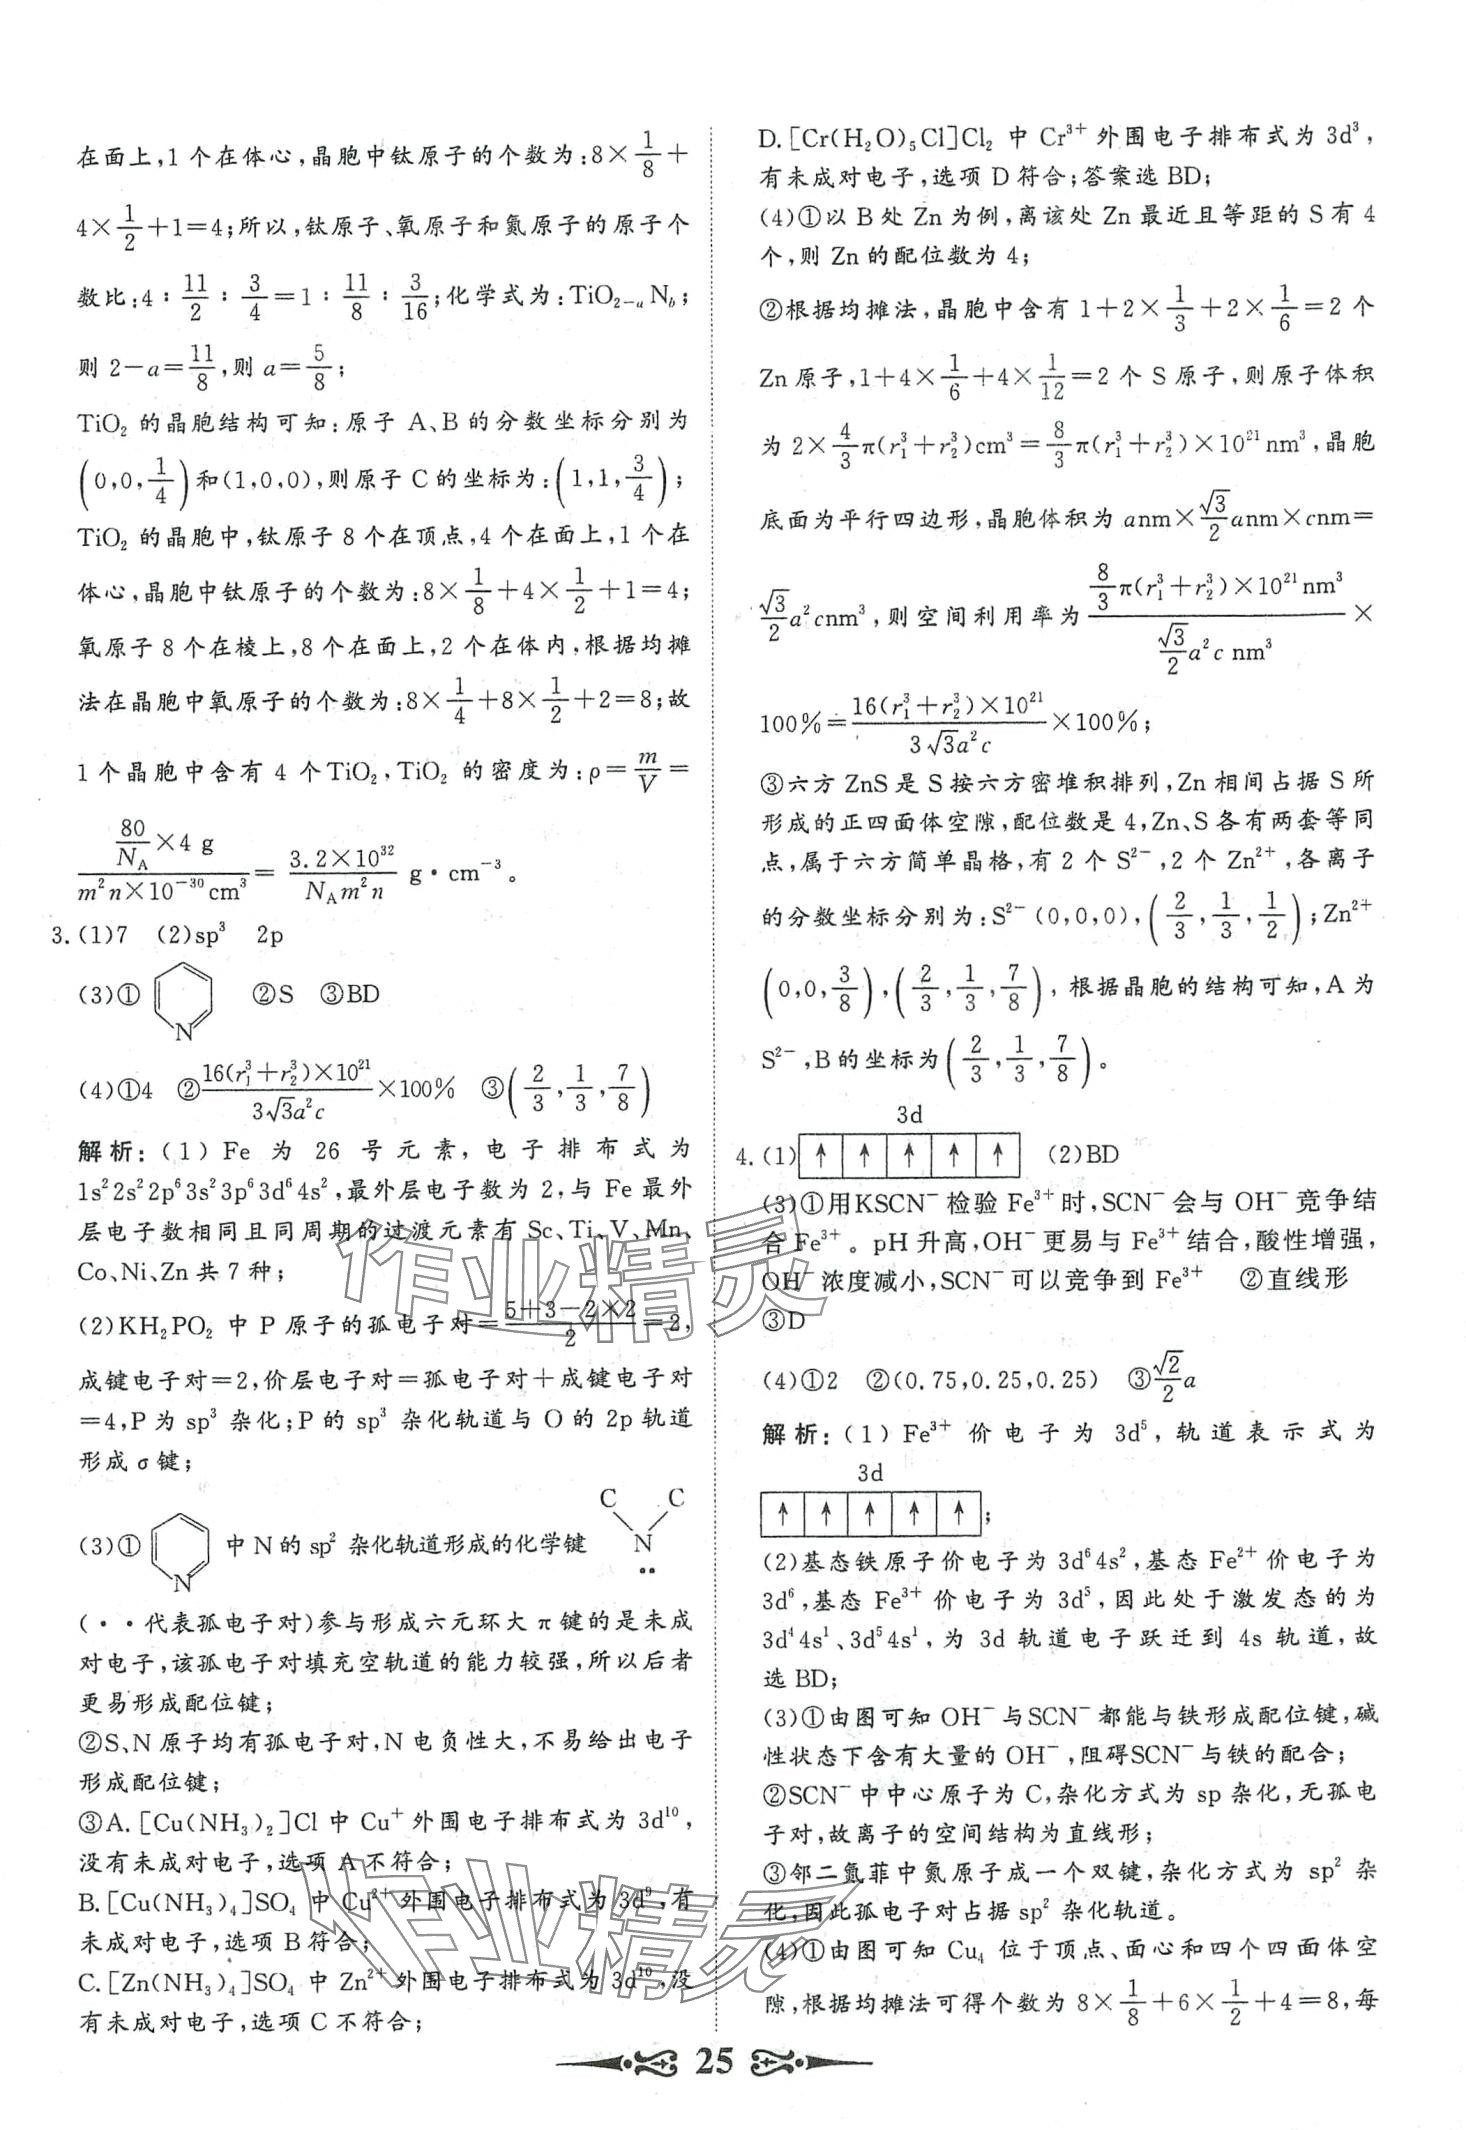 在面上,1个在体心,晶胞中钛原子的个数为:8×1/8+
4×1/2+1=4;所以,钛原子、氧原子和氮原子的原子个
数比:4∶11/2∶3/4=1∶11/8∶3/16;化学式为:TiO₂₋ₐN_b;
则2-a=11/8,则a=5/8;
TiO₂的晶胞结构可知:原子A、B的分数坐标分别为
(0,0,1/4)和(1,0,0),则原子C的坐标为:(1,1,3/4);
TiO₂的晶胞中,钛原子8个在顶点,4个在面上,1个在
体心,晶胞中钛原子的个数为:8×1/8+4×1/2+1=4;
氧原子8个在棱上,8个在面上,2个在体内,根据均摊
法在晶胞中氧原子的个数为:8×1/4+8×1/2+2=8;故
1个晶胞中含有4个TiO₂,TiO₂的密度为:ρ=m/V=
(80/N_A×4 g)/(m²n×10⁻³⁰cm³)=(3.2×10³²)/(N_Am²n) g·cm⁻³。
3.(1)7 (2)sp³ 2p
(3)① N ②S ③BD
(4)①4 ②16(r₁³+r₂³)×10²¹/(3√3a²c)×100% ③(2/3,1/3,7/8)
解析:(1)Fe为26号元素,电子排布式为
1s²2s²2p⁶3s²3p⁶3d⁶4s²,最外层电子数为2,与Fe最外
层电子数相同且同周期的过渡元素有Sc、Ti、V、Mn、
Co、Ni、Zn共7种;
(2)KH₂PO₂中P原子的孤电子对=(5+3-2×2)/2=2,
成键电子对=2,价层电子对=孤电子对+成键电子对
=4,P为sp³杂化;P的sp³杂化轨道与O的2p轨道
形成σ键;
(3)① N 中N的sp²杂化轨道形成的化学键 C C N ··
(··代表孤电子对)参与形成六元环大π键的是未成
对电子,该孤电子对填充空轨道的能力较强,所以后者
更易形成配位键;
②S、N原子均有孤电子对,N电负性大,不易给出电子
形成配位键;
③A.[Cu(NH₃)₂]Cl中Cu⁺外围电子排布式为3d¹⁰,
没有未成对电子,选项A不符合;
B.[Cu(NH₃)₄]SO₄中Cu²⁺外围电子排布式为3d⁹,有
未成对电子,选项B符合;
C.[Zn(NH₃)₄]SO₄中Zn²⁺外围电子排布式为3d¹⁰,没
有未成对电子,选项C不符合;
D.[Cr(H₂O)₅Cl]Cl₂中Cr³⁺外围电子排布式为3d³,
有未成对电子,选项D符合;答案选BD;
(4)①以B处Zn为例,离该处Zn最近且等距的S有4
个,则Zn的配位数为4;
②根据均摊法,晶胞中含有1+2×1/3+2×1/6=2个
Zn原子,1+4×1/6+4×1/12=2个S原子,则原子体积
为2×4/3π(r₁³+r₂³)cm³=8/3π(r₁³+r₂³)×10²¹nm³,晶胞
底面为平行四边形,晶胞体积为anm×√3/2anm×cnm=
√3/2a²cnm³,则空间利用率为(8/3π(r₁³+r₂³)×10²¹nm³)/(√3/2a²c nm³)×
100%=16(r₁³+r₂³)×10²¹/(3√3a²c)×100%;
③六方ZnS是S按六方密堆积排列,Zn相间占据S所
形成的正四面体空隙,配位数是4,Zn、S各有两套等同
点,属于六方简单晶格,有2个S²⁻,2个Zn²⁺,各离子
的分数坐标分别为:S²⁻(0,0,0),(2/3,1/3,1/2);Zn²⁺
(0,0,3/8),(2/3,1/3,7/8),根据晶胞的结构可知,A为
S²⁻,B的坐标为(2/3,1/3,7/8)。
3d
4.(1)↑ ↑ ↑ ↑ ↑ (2)BD
(3)①用KSCN⁻检验Fe³⁺时,SCN⁻会与OH⁻竞争结
合Fe³⁺。pH升高,OH⁻更易与Fe³⁺结合,酸性增强,
OH⁻浓度减小,SCN⁻可以竞争到Fe³⁺ ②直线形
③D
(4)①2 ②(0.75,0.25,0.25) ③√2/2a
解析:(1)Fe³⁺价电子为3d⁵,轨道表示式为
3d
↑ ↑ ↑ ↑ ↑;
(2)基态铁原子价电子为3d⁶4s²,基态Fe²⁺价电子为
3d⁶,基态Fe³⁺价电子为3d⁵,因此处于激发态的为
3d⁴4s¹、3d⁵4s¹,为3d轨道电子跃迁到4s轨道,故
选BD;
(3)①由图可知OH⁻与SCN⁻都能与铁形成配位键,碱
性状态下含有大量的OH⁻,阻碍SCN⁻与铁的配合;
②SCN⁻中中心原子为C,杂化方式为sp杂化,无孤电
子对,故离子的空间结构为直线形;
③邻二氮菲中氮原子成一个双键,杂化方式为sp²杂
化,因此孤电子对占据sp²杂化轨道。
(4)①由图可知Cu₄位于顶点、面心和四个四面体空
隙,根据均摊法可得个数为8×1/8+6×1/2+4=8,每
25
作业精灵
作业精灵